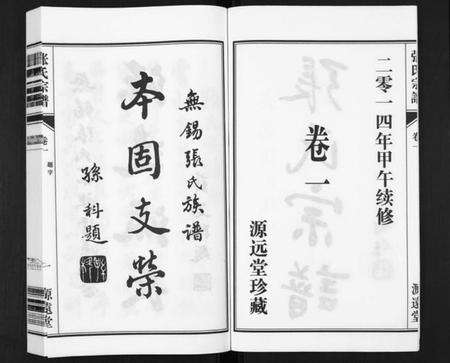 張氏宗譜
卷一
二零一四年甲午续修
卷一
源远堂珍藏
源遠堂
無錫張氏族譜
本固支榮
孫科題
张氏宗譜
卷一
題字
源遠堂